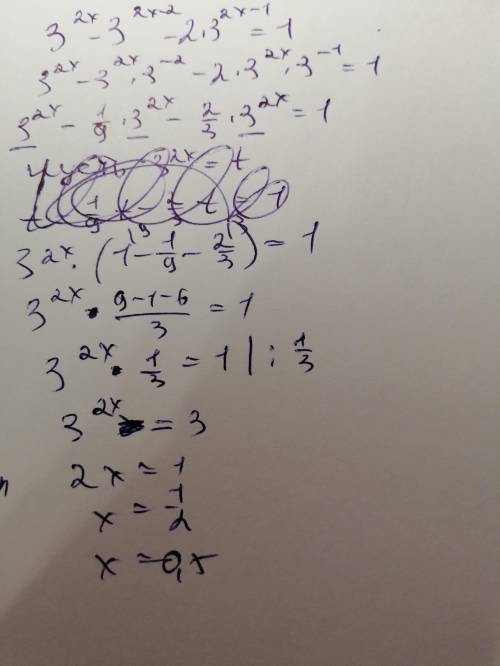 3^{2x} - 3^{2x-2} - 2·3^{2x-1} = 1
3^{2x} - 3^{2x}·3^{-2} - 2·3^{2x}·3^{-1} = 1
3^{2x} - 1/9·3^{2x} - 2/3·3^{2x} = 1
3^{2x} = t
3^{2x}·(1 - 1/9 - 2/3) = 1
3^{2x}·(9-1-6)/3 = 1
3^{2x}·1/3 = 1 | : 1/3
3^{2x} = 3
2x = 1
x = 1/2
x = 0,5